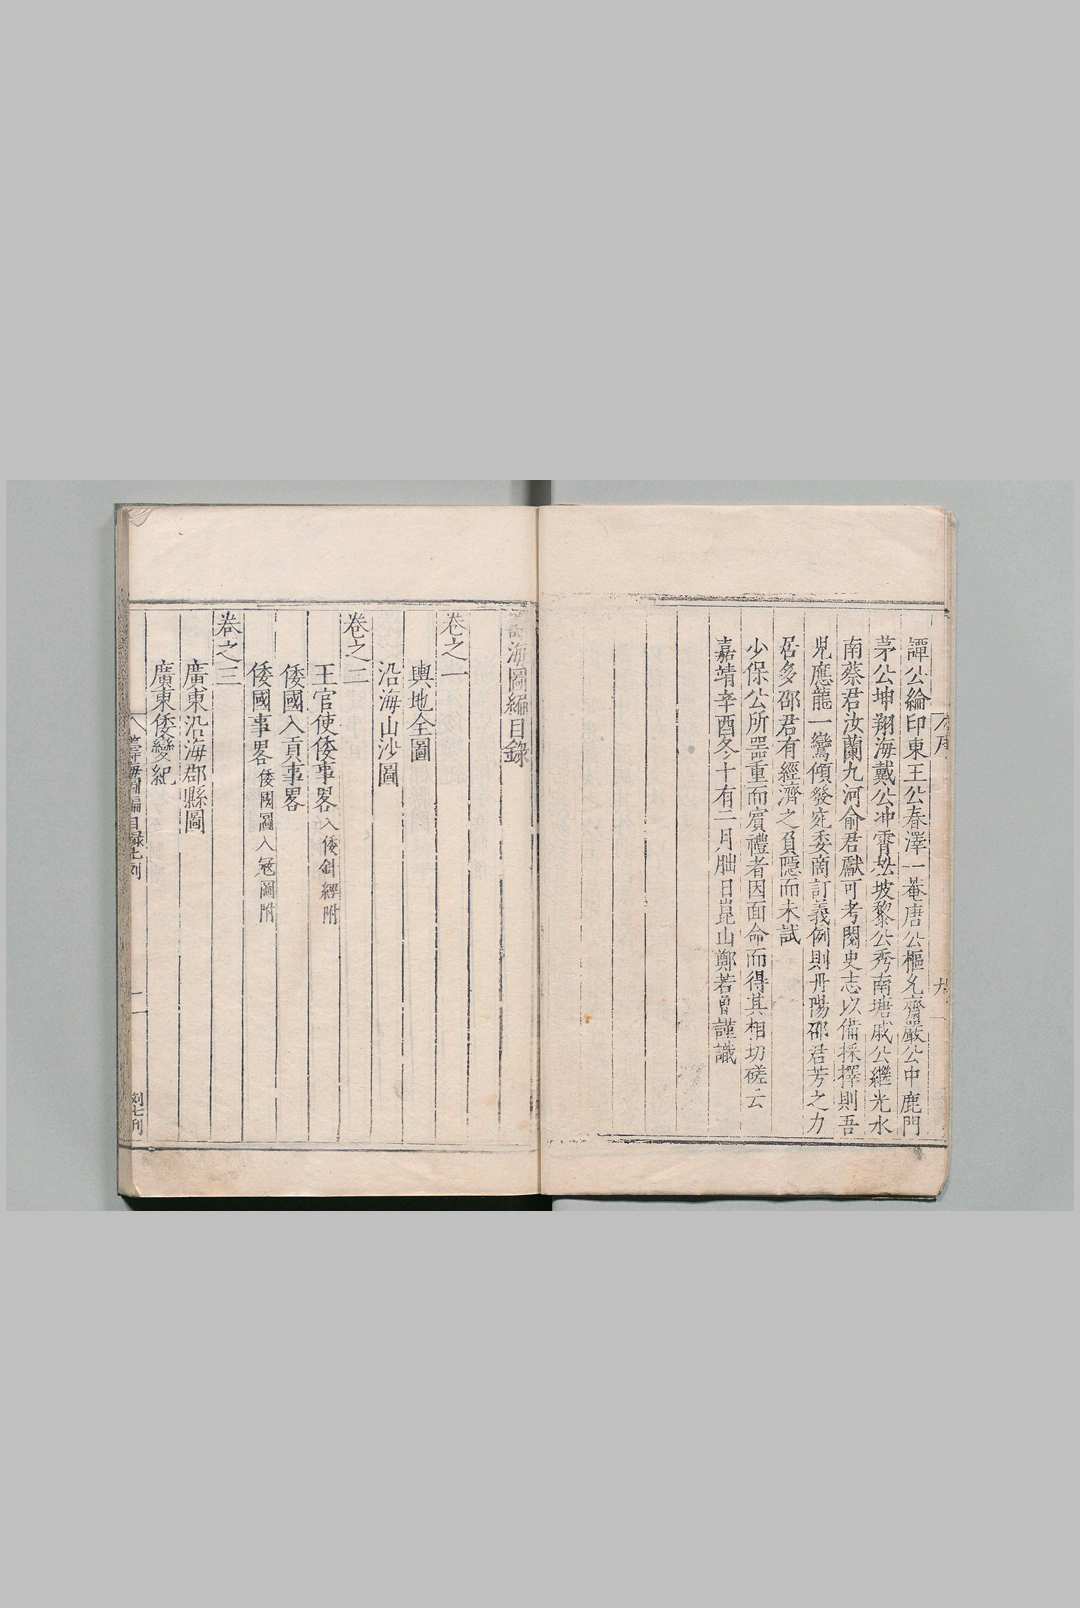 譚公綸印東王公春澤一菴唐公樞允齋嚴公中鹿門
茅公坤翔海戴公冲霄松坡黎公秀南塘戚公繼光水
南蔡君汝蘭九河俞君獻可考閱史志以備採擇則吾
兒應龍一鸞傾發究委商訂義例則丹陽邵君芳之力
居多邵君有經濟之負隱而未試
少保公所器重而賓禮者因面命而得其相切磋云
嘉靖辛酉冬十有二月朏日崑山鄭若曾謹識
海圖編目錄
卷之一
輿地全圖
沿海山沙圖
卷之二
王官使倭事畧 入倭針經附
倭國入貢事畧
倭國事畧 倭國圖入寇圖附
卷之三
廣東沿海郡縣圖
廣東倭變紀